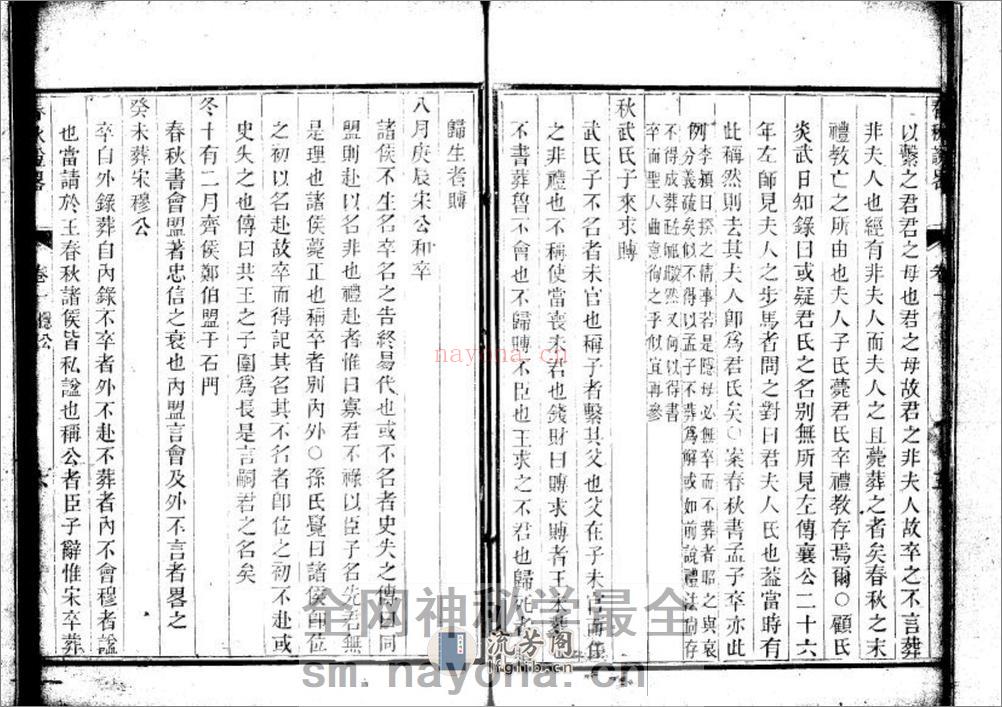 以繫之君君之母也君之母故君之非夫人故卒之不言葬
非夫人也經有非夫人而夫人之且薨葬之者矣春秋之末
禮教亡之所由也夫人子氏薨君氏卒禮教存焉爾○顧氏
炎武日知錄曰或疑君氏之名別無所見左傳襄公二十六
年左師見夫人之步馬者問之對曰君夫人氏也蓋當時有
此稱然則去其夫人卽爲君氏矣○案春秋書孟子卒亦此
例李穎曰揆之情事若是隱母必無卒而不葬者昭之與哀
分義疏矣似不得以孟子不葬爲解或如前說禮法尙存
不得成葬
然又何以得書
卒而聖人曲意徇之乎似宜再參
秋武氏子來求賻
武氏子不名者未官也稱子者繫其父也父在子未官而任
之非禮也不稱使當喪未君也錢財曰賻求賻者王未葬
不書葬魯不會也不歸賻不臣也王求之不君也歸死者
歸生者賻
八月庚辰宋公和卒
諸侯不生名卒名之告終易代也或不名者史失之傳曰同
盟則赴以名非也禮赴者惟曰寡君不祿以臣子名先君無
是理也諸侯薨正也稱卒者別內外○孫氏覺曰諸侯卽位
之初以名赴故卒而得記其名其不名者卽位之初不赴或
史失之也傳曰共王之子圍爲長是言嗣君之名矣
冬十有二月齊侯鄭伯盟于石門
春秋書會盟著忠信之衰也內盟言會及外不言者畧之
癸未葬宋穆公
卒自外錄葬自內錄不卒者外不赴不葬者內不會穆者諡
也當請於王春秋諸侯皆私諡也稱公者臣子辭惟宋卒葬
卷一 隱公
nayona.cn
全网神秘学最全
流芳阁
lfglib.cn
sm.nayona.cn